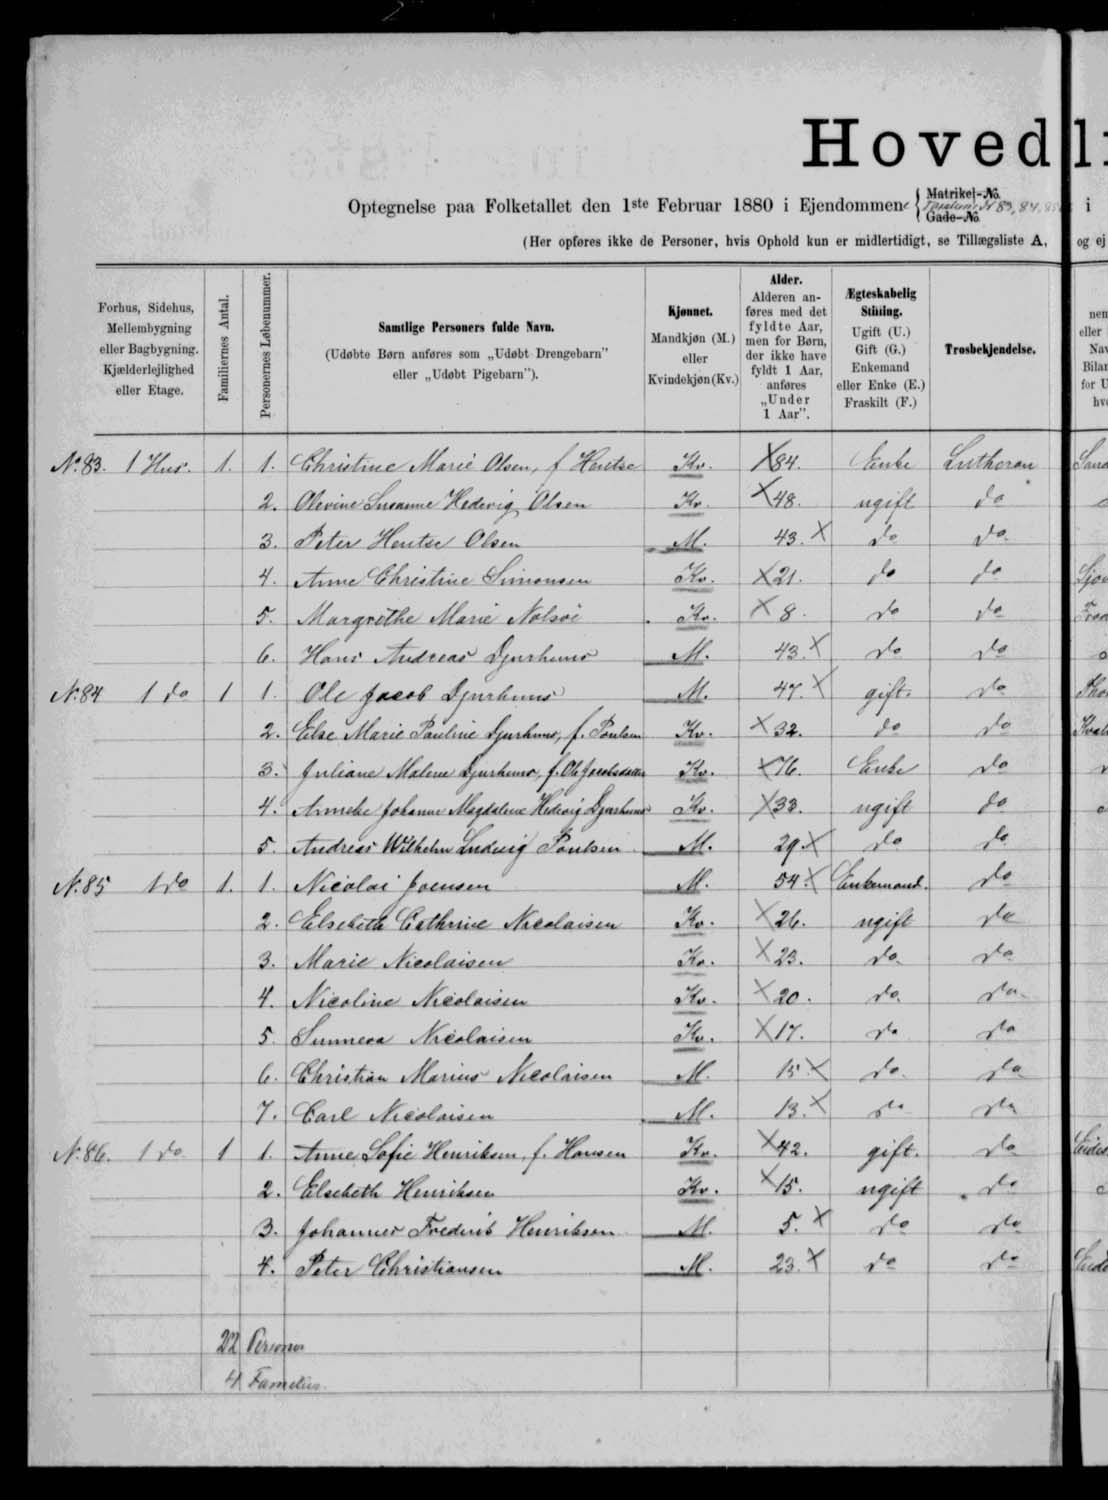 Hovedli
Optegnelse paa Folketallet den 1ste Februar 1880 i Ejendommene { Matrikel-No. Gade-No. No 83, 84, 85 i
(Her opføres ikke de Personer, hvis Ophold kun er midlertidigt, se Tillægsliste A, og ej
Forhus, Sidehus, Mellembygning eller Bagbygning. Kjælderlejlighed eller Etage.
Familiernes Antal.
Personernes Løbenummer.
Samtlige Personers fulde Navn.
(Udøbte Børn anføres som „Udøbt Drengebarn" eller „Udøbt Pigebarn").
Kjønnet.
Mandkjøn (M.) eller Kvindekjøn (Kv.)
Alder.
Alderen anføres med det fyldte Aar, men for Børn, der ikke have fyldt 1 Aar, anføres „Under 1 Aar".
Ægteskabelig Stilling.
Ugift (U.) Gift (G.) Enkemand eller Enke (E.) Fraskilt (F.)
Trosbekjendelse.
No 83. 1 Hus. 1. 1. Christine Marie Olsen, f Hentze Kv. X 84. Enke Lutheran
2. Olevine Susanne Hedevig Olsen Kv. X 48. ugift do
3. Peter Hentze Olsen M. 43. X do do
4. Anne Christine Simonsen Kv. X 21. do do
5. Margrethe Marie Nolsøe Kv. X 8. do do
6. Hans Andreas Djurhuus M. 43. X do do
No 84 1 do 1 1. Ole Jacob Djurhuus M. 47. X gift. do
2. Else Marie Pauline Djurhuus, f. Poulsen Kv. X 32. do do
3. Juliane Malene Djurhuus, f. Ole Jacobsdatter Kv. X 76. Enke do
4. Anneke Johanne Magdalene Hedevig Djurhuus Kv. X 33. ugift do
5. Andreas Wilhelm Ludvig Poulsen M. 29. X do do
No 85 1 do 1. 1. Nicolai Joensen M. 54. X Enkemand. do
2. Elsebeth Cathrine Nicolaisen Kv. X 26. ugift do
3. Marie Nicolaisen Kv. X 23. do do
4. Nicoline Nicolaisen Kv. X 20. do do
5. Sunneva Nicolaisen Kv. X 17. do do
6. Christian Marius Nicolaisen M. 15. X do do
7. Carl Nicolaisen M. 13. X do do
No 86. 1 do 1 1. Anne Sofie Henriksen, f. Hansen Kv. X 42. gift. do
2. Elsebeth Henriksen Kv. X 15. ugift do
3. Johannes Frederik Henriksen M. 5. X do do
4. Peter Christiansen M. 23. X do do
22 Personer
4 Familier.